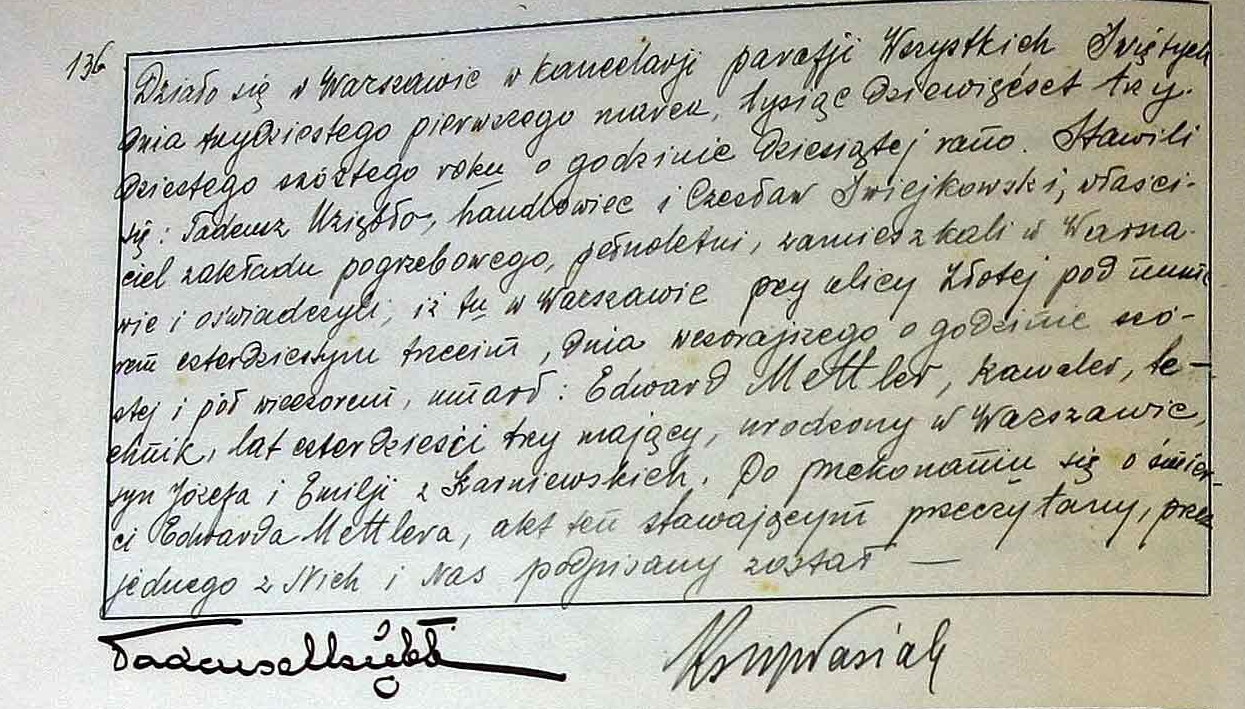 136
Działo się w Warszawie w kancelarji parafji Wszystkich Świętych
dnia trzydziestego pierwszego marca, tysiąc dziewięćset trzy-
dziestego szóstego roku o godzinie dziesiątej rano. Stawili
się: Tadeusz Uziębło, handlowiec i Czesław Świejkowski, właści-
ciel zakładu pogrzebowego, pełnoletni, zamieszkali w Warsza-
wie i oświadczyli, iż tu w Warszawie przy ulicy Złotej pod nume-
rem czterdziestym trzecim, dnia wczorajszego o godzinie szó-
stej i pół wieczorem, umarł: Edward Mettler, kawaler, te-
chnik, lat czterdzieści trzy mający, urodzony w Warszawie,
syn Józefa i Emilji z Karniewskich. Po przekonaniu się o śmier-
ci Edwarda Mettlera, akt ten stawającym przeczytany, przez
jednego z Nich i Nas podpisany został —
Tadeusz Uziębło